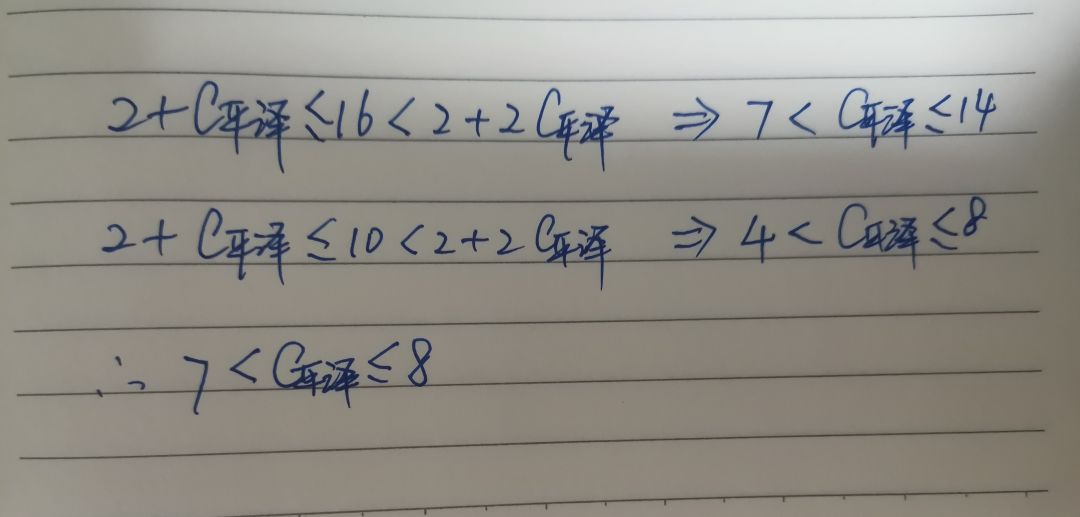 2+C平译≤16<2+2C平译 ⇒ 7<C平译≤14
2+C平译≤10<2+2C平译 ⇒ 4<C平译≤8
∴ 7<C平译≤8